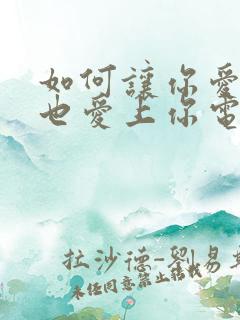 如何讓你愛
也愛上你電
拉沙德-劉易斯
未經同意禁止轉載